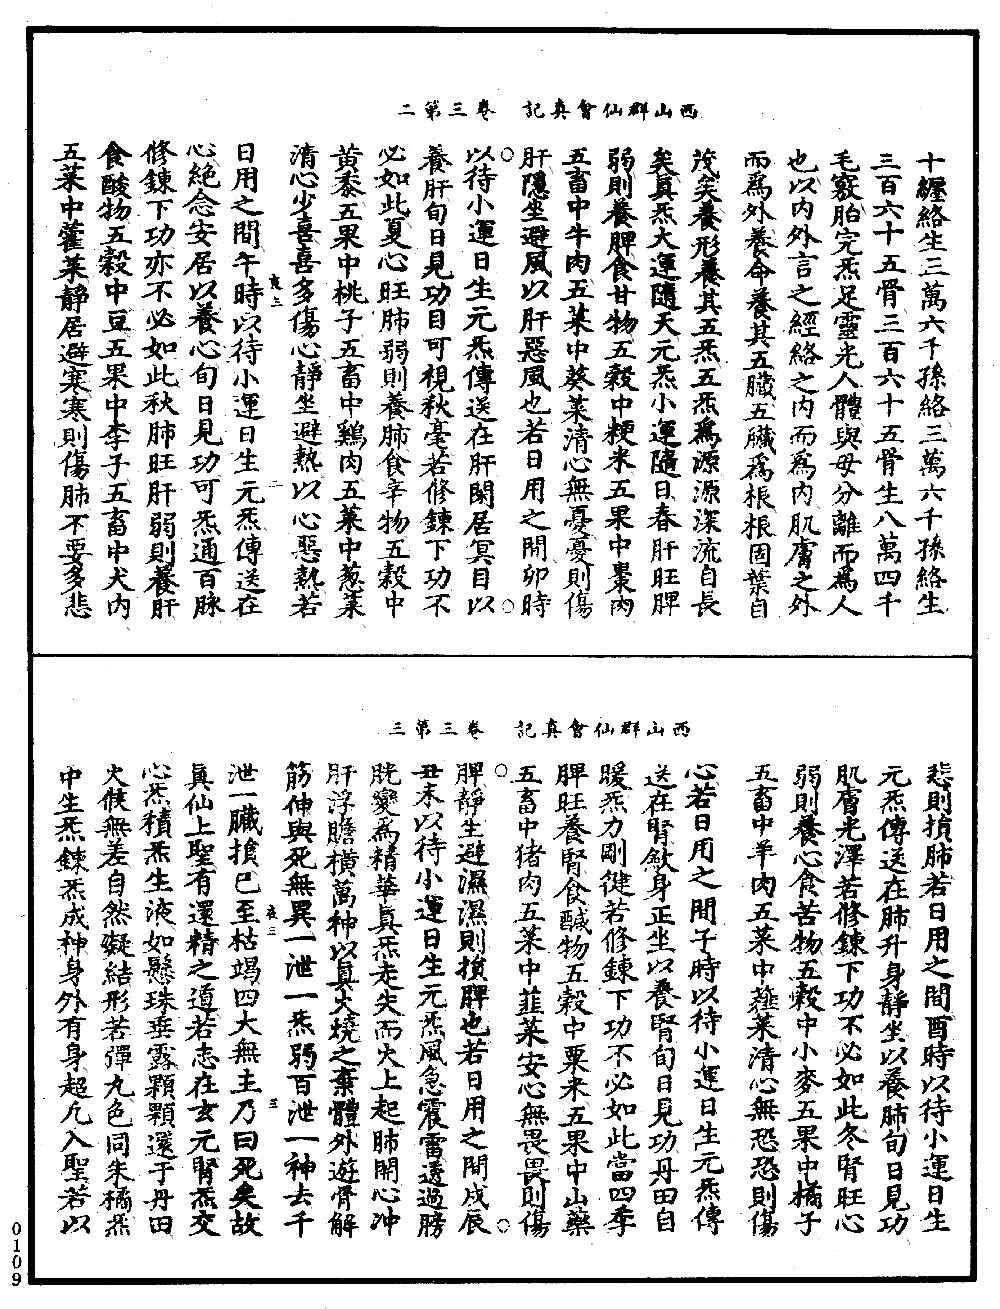 西山群仙會真記　卷三第二
十纏絡生三萬六千孫絡三萬六千孫絡生
三百六十五骨三百六十五骨生八萬四千
毛竅胎完炁足靈光人體與母分離而爲人
也以内外言之經絡之内而爲内肌膚之外
而爲外養命養其五臟五臟爲根根固葉自
茂矣養形養其五炁五炁爲源源深流自長
矣真炁大運隨天元炁小運隨日春肝旺脾
弱則養脾食甘物五穀中粳米五果中棗肉
五畜中牛肉五菜中葵菜清心無憂憂則傷
肝隱坐避風以肝惡風也若日用之間卯時
以待小運日生元炁傳送在肝閑居冥目以
養肝旬日見功目可視秋毫若修鍊下功不
必如此夏心旺肺弱則養肺食辛物五穀中
黄黍五果中桃子五畜中鷄肉五菜中葱菜
清心少喜喜多傷心靜坐避熱以心惡熱若
夜上　二
日用之間午時以待小運日生元炁傳送在
心絶念安居以養心旬日見功可炁通百脉
修鍊下功亦不必如此秋肺旺肝弱則養肝
食酸物五穀中豆五果中李子五畜中犬内
五菜中藿菜靜居避寒寒則傷肺不要多悲
西山群仙會真記　卷三第三
悲則損肺若日用之間酉時以待小運日生
元炁傳送在肺升身靜坐以養肺旬日見功
肌膚光澤若修鍊下功不必如此冬腎旺心
弱則養心食苦物五穀中小麥五果中橘子
五畜中羊肉五菜中薤菜清心無恐恐則傷
心若日用之間子時以待小運日生元炁傳
送在腎斂身正坐以養腎旬日見功丹田自
暖炁力剛健若修鍊下功不必如此當四季
脾旺養腎食鹹物五穀中粟米五果中山藥
五畜中猪肉五菜中韭菜安心無畏畏則傷
脾靜生避濕濕則損脾也若日用之間戍辰
丑未以待小運日生元炁風急震雷透過膀
胱變爲精華真炁走失而火上起肺開心冲
肝浮膽橫萬神以真火燒之棄體外遊骨解
筋伸與死無異一泄一炁弱百泄一神去千
夜三　三
泄一臟損已至枯竭四大無主乃曰死矣故
真仙上聖有還精之道若志在玄元腎炁交
心炁積炁生液如懸珠垂露顆顆還于丹田
火候無差自然凝結形若彈丸色同朱橘炁
中生炁鍊炁成神身外有身超凡入聖若以
0109